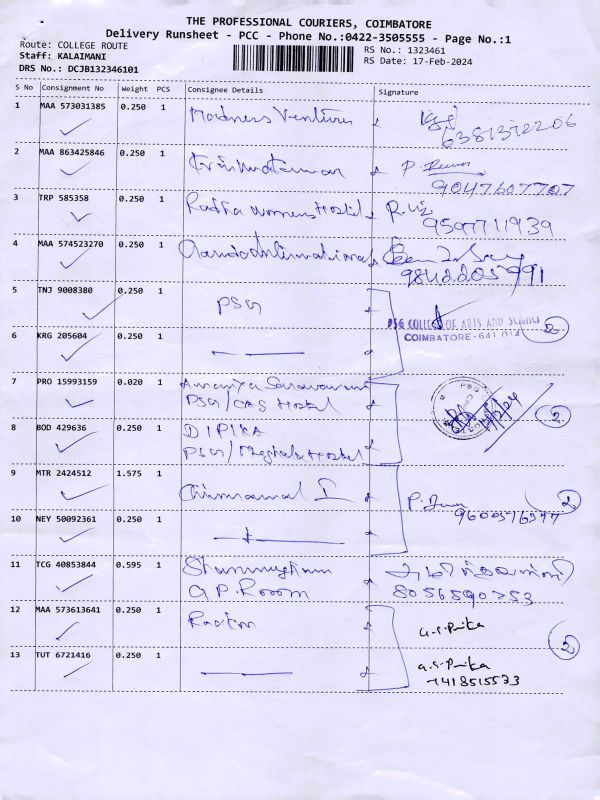 THE PROFESSIONAL COURIERS, COIMBATORE
Delivery Runsheet - PCC - Phone No.:0422-3505555 - Page No.:1
Route: COLLEGE ROUTE
Staff: KALAIMANI
DRS No.: DCJB132346101
RS No.: 1323461
RS Date: 17-Feb-2024
S No Consignment No Weight PCS Consignee Details Signature
1 MAA 573031385 0.250 1 Madness Ventures
6381372206
2 MAA 863425846 0.250 1
9047607707
3 TRP 585358 0.250 1 Radha womens Hostel
9597711939
4 MAA 574523270 0.250 1
9842205991
5 TNJ 9008380 0.250 1 PSG
PSG COLLEGE OF ARTS AND SCIENCE
COIMBATORE - 641 014
2
6 KRG 205604 0.250 1
7 PRO 15993159 0.020 1 Ananya Saravanan
PSG/CAS Hostel
2
8 BOD 429636 0.250 1 DIPIKA
PSG/ Hostel
9 MTR 2424512 1.575 1
2
10 NEY 50092361 0.250 1
11 TCG 40853844 0.595 1
G.P. Room
8056590253
12 MAA 573613641 0.250 1
G.S. Prika
2
13 TUT 6721416 0.250 1
G.S. Prika
7418515523